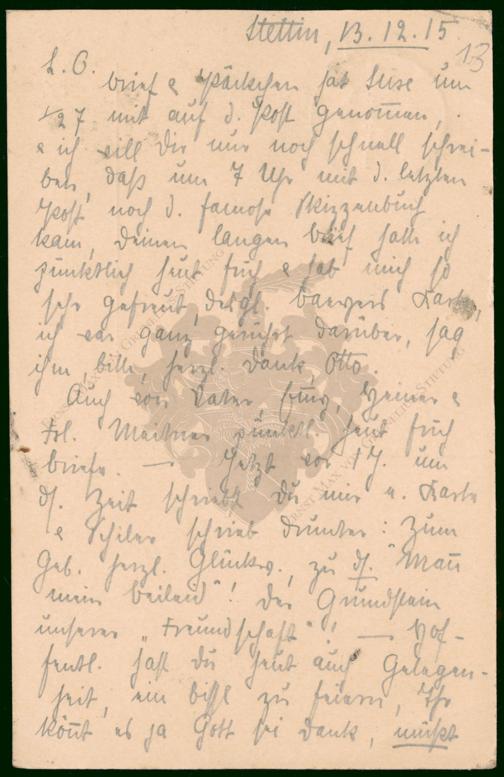 Stettin, 13.12.15
13
L. O.
Brief & Päckchen hat Suse um
1/2 7 mit auf d. Post genommen,
& ich will Dir nur noch schnell schrei-
ben, daß um 7 Uhr mit d. letzten
Post noch d. famose Skizzenbuch
kam, Deinen langen Brief hatte ich
pünktlich heut früh & hab mich so
sehr gefreut, desgl. Karte,
ich war ganz gerührt darüber, sag
ihm, bitte, herzl. Dank, Otto
Auch von Vater, Heiner &
Frl. Meitner pünktl. heut früh
Briefe. — Jetzt vor 1 J. um
ds. Zeit schriebst Du mir e. Karte
& Schiler schrieb drunter: Zum
Geb. herzl. Glückw., zu ds. Mañ
mein Beileid"! Der Grundstein
unserer „Freundschaft"! — Hof-
fentl. hast Du heut auch Gelegen-
heit, ein bissl zu feiern, Ihr
köñt es ja Gott sei Dank, müßt
ERNST MAX VON GRUNELIUS-STIFTUNG